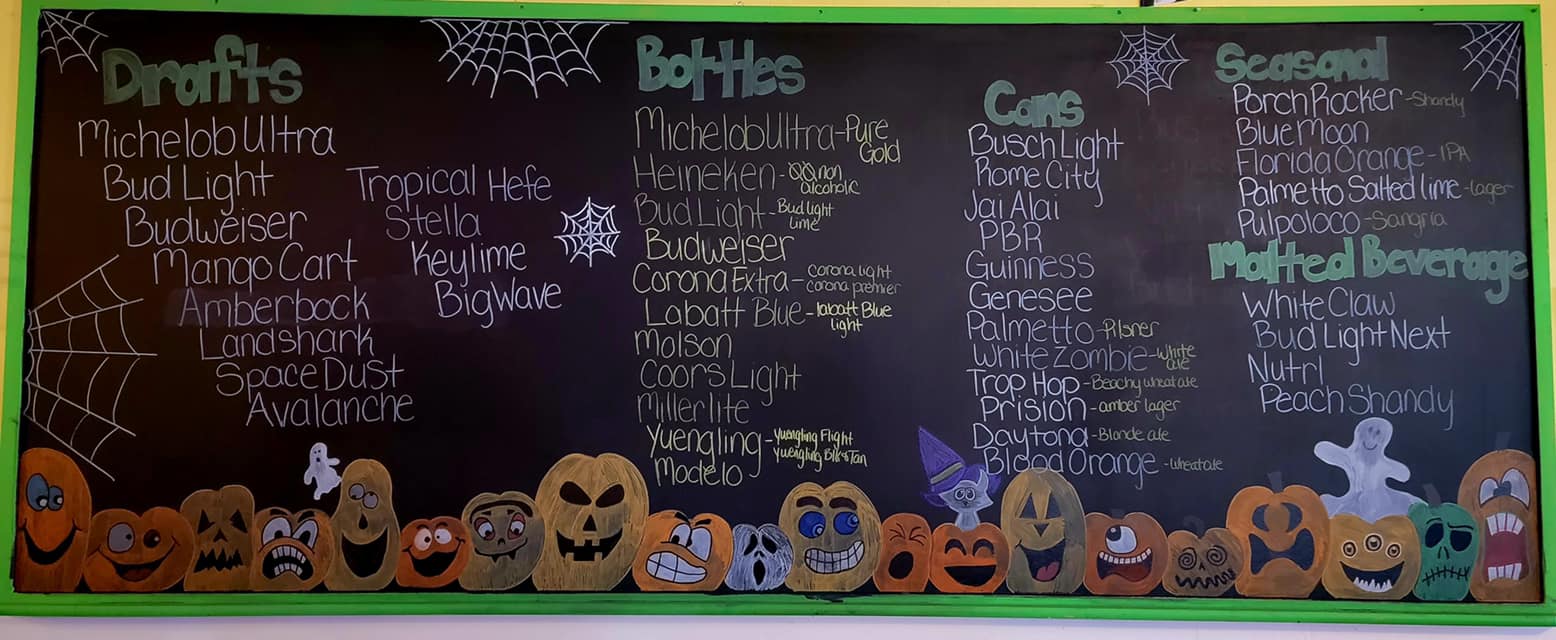 Drafts
Michelob Ultra
Bud Light
Budweiser
Mango Cart
Amberbock
Landshark
Space Dust
Avalanche
Tropical Hefe
Stella
Keylime
Big Wave
Bottles
Michelob Ultra - Pure
Gold
Heineken - non
alcoholic
Bud Light - Bud light
lime
Budweiser
Corona Extra - corona light
corona premier
Labatt Blue - labatt Blue
light
Molson
Coors Light
Miller lite
Yuengling - Yuengling Flight
Yuengling Blk & Tan
Modelo
Cans
Busch Light
Rome City
Jai Alai
PBR
Guinness
Genesee
Palmetto - Pilsner
White Zombie - White
ale
Trop Hop - Beachy wheat ale
Prision - amber lager
Daytona - Blonde ale
Blood Orange - wheat ale
Seasonal
Porch Rocker - Shandy
Blue Moon
Florida Orange - IPA
Palmetto Salted lime - lager
Pulpoloco - Sangria
Malted Beverage
White Claw
Bud Light Next
Nutrl
Peach Shandy